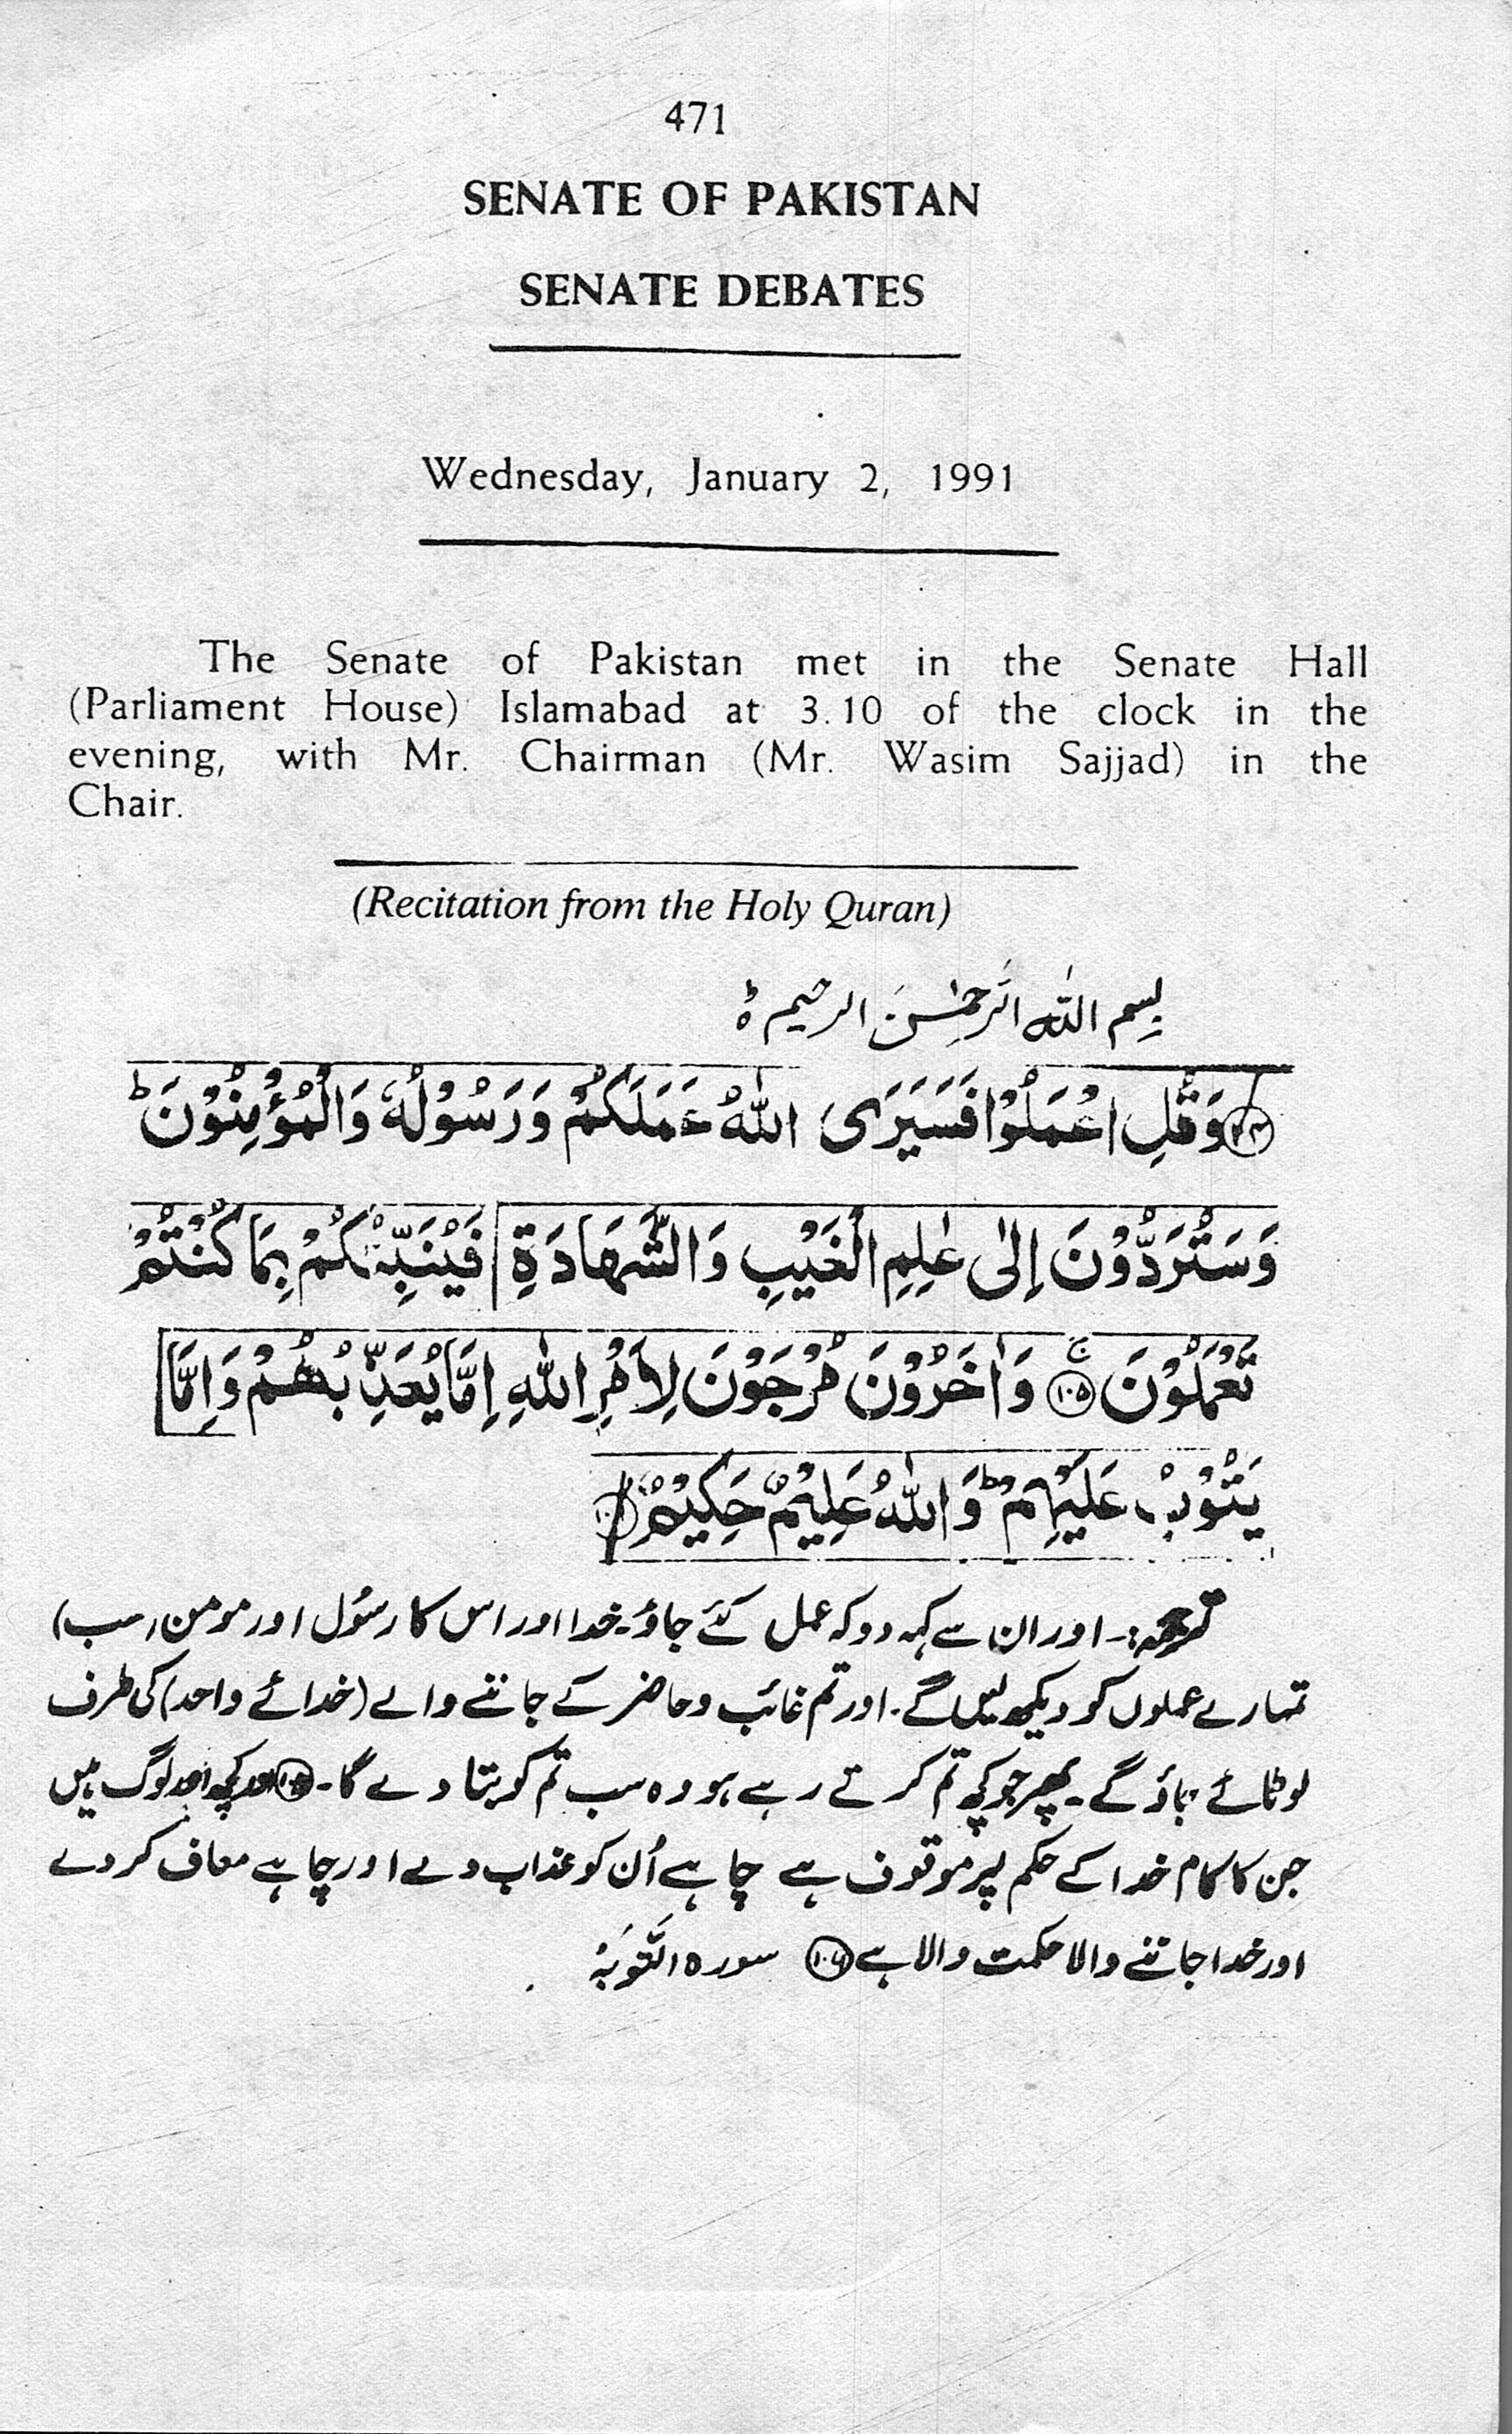 471
SENATE OF PAKISTAN
SENATE DEBATES
Wednesday, January 2, 1991
The Senate of Pakistan met in the Senate Hall
(Parliament House) Islamabad at 3.10 of the clock in the
evening, with Mr. Chairman (Mr. Wasim Sajjad) in the
Chair.
(Recitation from the Holy Quran)
بسم اللہ الرحمٰن الرحیم ط
وَقُلِ اعْمَلُوْا فَسَيَرَى اللّٰهُ عَمَلَكُمْ وَرَسُوْلُهٗ وَالْمُؤْمِنُوْنَ ؕ
وَسَتُرَدُّوْنَ اِلٰى عٰلِمِ الْغَيْبِ وَالشَّهَادَةِ فَيُنَبِّئُكُمْ بِمَا كُنْتُمْ
تَعْمَلُوْنَ ۚ ﴿١٠٥﴾ وَاٰخَرُوْنَ مُرْجَوْنَ لِاَمْرِ اللّٰهِ اِمَّا يُعَذِّبُهُمْ وَاِمَّا
يَتُوْبُ عَلَيْهِمْ ؕ وَاللّٰهُ عَلِيْمٌ حَكِيْمٌ
ترجمہ:۔ اور ان سے کہہ دو کہ عمل کئے جاؤ۔ خدا اور اس کا رسُول اور مومن (سب)
تمہارے عملوں کو دیکھ لیں گے۔ اور تم غائب و حاضر کے جاننے والے (خدائے واحد) کی طرف
لوٹائے جاؤ گے۔ پھر جو کچھ تم کرتے رہے ہو وہ سب تم کو بتا دے گا۔ (١٠٥) اور کچھ اور لوگ ہیں
جن کا کام خدا کے حکم پر موقوف ہے چاہے اُن کو عذاب دے اور چاہے معاف کر دے
اور خدا جاننے والا حکمت والا ہے (١٠٦) سورہ التَّوبَۃ